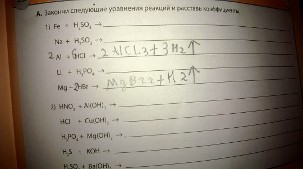 А. Закончи следующие уравнения реакций и расставь коэффициенты.
1) Fe + H₂SO₄ →
Na + H₂SO₄ →
2 Al + 6HCl → 2AlCl3 + 3H2↑
Li + H₃PO₄ →
Mg + 2HBr → MgBr2 + H2↑
2) HNO₃ + Al(OH)₃ →
HCl + Cu(OH)₂ →
H₃PO₄ + Mg(OH)₂ →
H₂S + KOH →
H₂SO₄ + Ba(OH)₂ →